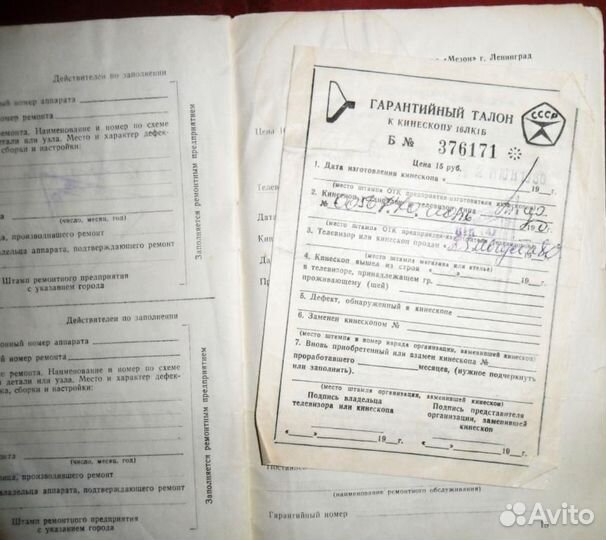 Действителен по заполнении
ный номер аппарата
номер ремонта
ремонта. Наименование и номер по схеме
детали или узла. Место и характер дефек-
сборки и настройки:
(число, месяц, год)
ца, производившего ремонт
владельца аппарата, подтверждающего ремонт
Штамп ремонтного предприятия
с указанием города
Заполняется ремонтным предприятием
Действителен по заполнении
ионный номер аппарата
ый номер ремонта
ие ремонта. Наименование и номер по схеме
й детали или узла. Место и характер дефек-
а, сборки и настройки:
(число, месяц, год)
ица, производившего ремонт
владельца аппарата, подтверждающего ремонт
Штамп ремонтного предприятия
с указанием города
Заполняется ремонтным предприятием
«Мезон» г. Ленинград
Цена
Телев
Дата
Кин
Да
ГАРАНТИЙНЫЙ ТАЛОН
К КИНЕСКОПУ 16ЛК1Б
СССР
Б № 376171
Цена 15 руб.
1. Дата изготовления кинескопа «    19  г.
(место штампа ОТК предприятия-изготовителя кинескопа)
2. Кинескоп
№
(место штампа ОТК
3. Телевизор или кинескоп продан «
(место штампа магазина или ателье)
4. Кинескоп вышел из строя «    »    19  г.
в телевизоре, принадлежащем гр.
проживающему (щей)
5. Дефект, обнаруженный в кинескопе
6. Заменен кинескопом №
(место штампа и номер наряда организации, заменившей кинескоп)
7. Вновь приобретенный или взамен кинескопа №
проработавшего    месяцев, (нужное подчеркнуть
или заполнить).
(место штампа организации, заменившей кинескоп)
Подпись владельца
телевизора или кинескопа
Подпись представителя
организации, заменившей
кинескоп
«    »    19  г.
«    »    19  г.
(наименование ремонтного обслуживания)
Гарантийный номер
Avito